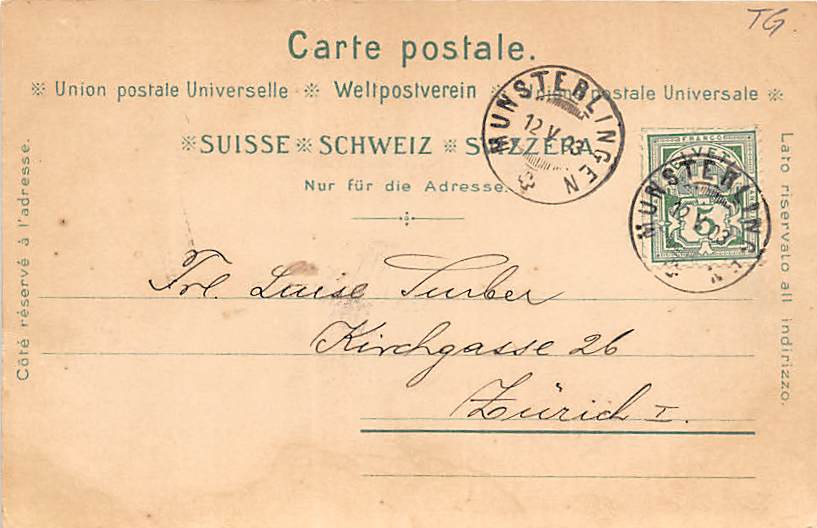 TG
Carte postale.
※ Union postale Universelle ※ Weltpostverein ※ Unione postale Universale ※
※ SUISSE ※ SCHWEIZ ※ SVIZZERA
Nur für die Adresse.
MÜNSTERLINGEN
12 V 03
FRANCO
HELVETIA
5
MÜNSTERLINGEN
12 V 03
Côté réservé à l'adresse.
Lato riservato all indirizzo.
Frl. Luise Surber
Kirchgasse 26
Zürich I.